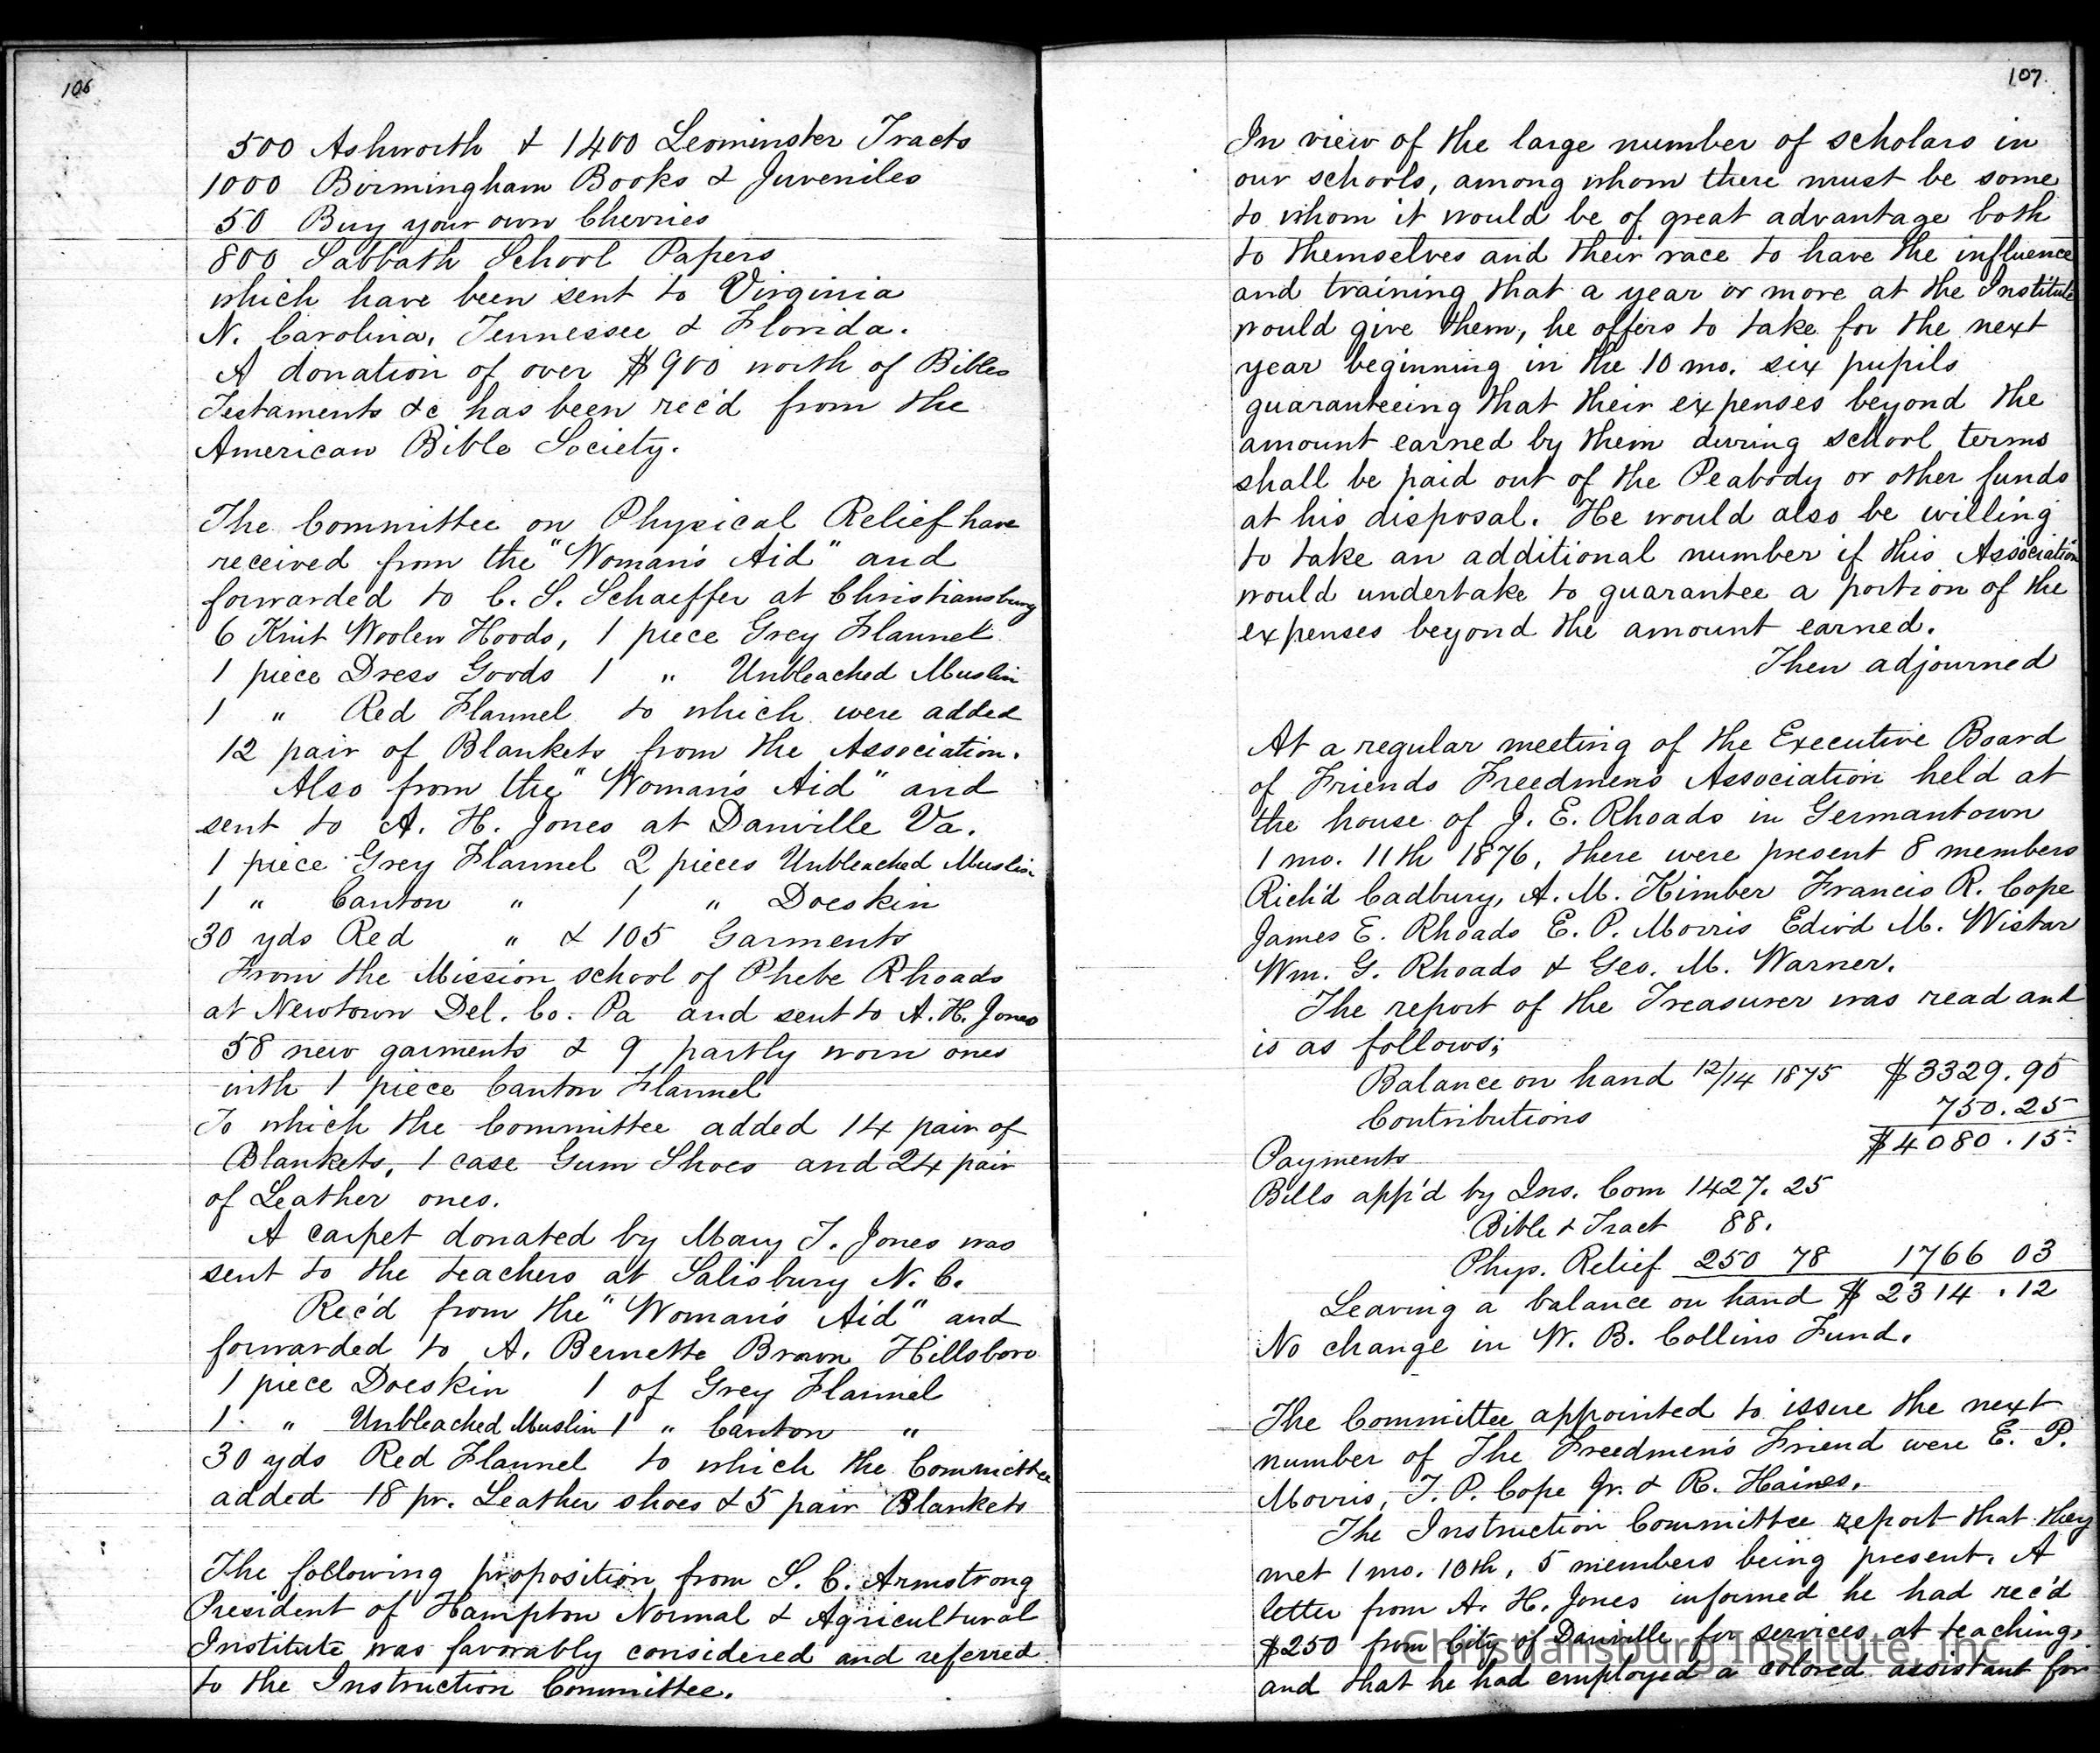 106
500 Ashworth & 1400 Leominster Tracts
1000 Birmingham Books & Juveniles
50 Buy your own Cherries
800 Sabbath School Papers
which have been sent to Virginia
N. Carolina, Tennessee & Florida.
A donation of over $900 worth of Bibles
Testaments &c has been rec'd from the
American Bible Society.
The Committee on Physical Relief have
received from the "Woman's Aid" and
forwarded to C. S. Schaeffer at Christiansburg
6 Knit Woolen Hoods, 1 piece Grey Flannel
1 piece Dress Goods 1 " Unbleached Muslin
1 " Red Flannel to which were added
12 pair of Blankets from the Association.
Also from the "Woman's Aid" and
sent to A. H. Jones at Danville Va.
1 piece Grey Flannel 2 pieces Unbleached Muslin
1 " Canton " 1 " Doeskin
30 yds Red " & 105 Garments
From the Mission school of Phebe Rhoads
at Newtown Del. Co. Pa and sent to A. H. Jones
58 new garments & 9 partly worn ones
with 1 piece Canton Flannel
To which the Committee added 14 pair of
Blankets, 1 case Gum Shoes and 24 pair
of Leather ones.
A carpet donated by Mary T. Jones was
sent to the teachers at Salisbury N. C.
Rec'd from the "Woman's Aid" and
forwarded to A. Bernette Brown Hillsboro
1 piece Doeskin 1 of Grey Flannel
1 " Unbleached Muslin 1 " Canton "
30 yds Red Flannel to which the Committee
added 18 pr. Leather shoes & 5 pair Blankets
The following proposition from S. C. Armstrong
President of Hampton Normal & Agricultural
Institute was favorably considered and referred
to the Instruction Committee.
107.
In view of the large number of scholars in
our schools, among whom there must be some
to whom it would be of great advantage both
to themselves and their race to have the influence
and training that a year or more at the Institute
would give them, he offers to take for the next
year beginning in the 10 mo. six pupils
guaranteeing that their expenses beyond the
amount earned by them during school terms
shall be paid out of the Peabody or other funds
at his disposal. He would also be willing
to take an additional number if this Association
would undertake to guarantee a portion of the
expenses beyond the amount earned.
Then adjourned
At a regular meeting of the Executive Board
of Friends Freedmen's Association held at
the house of J. E. Rhoads in Germantown
1 mo. 11th 1876, there were present 8 members
Rich'd Cadbury, A. M. Kimber Francis R. Cope
James E. Rhoads E. P. Morris Edw'd M. Wistar
Wm. G. Rhoads & Geo. M. Warner.
The report of the Treasurer was read and
is as follows;
Balance on hand 12/14 1875 $3329.90
Contributions 750.25
$4080.15
Payments
Bills app'd by Ins. Com 1427.25
Bible & Tract 88.
Phys. Relief 250 78 1766 03
Leaving a balance on hand $2314.12
No change in W. B. Collins Fund.
The Committee appointed to issue the next
number of The Freedmen's Friend were E. P.
Morris, T. P. Cope Jr. & R. Haines.
The Instruction Committee report that they
met 1 mo. 10th, 5 members being present. A
letter from A. H. Jones informed he had rec'd
$250 from City of Danville for services at teaching,
and that he had employed a colored assistant for
Christiansburg Institute, Inc